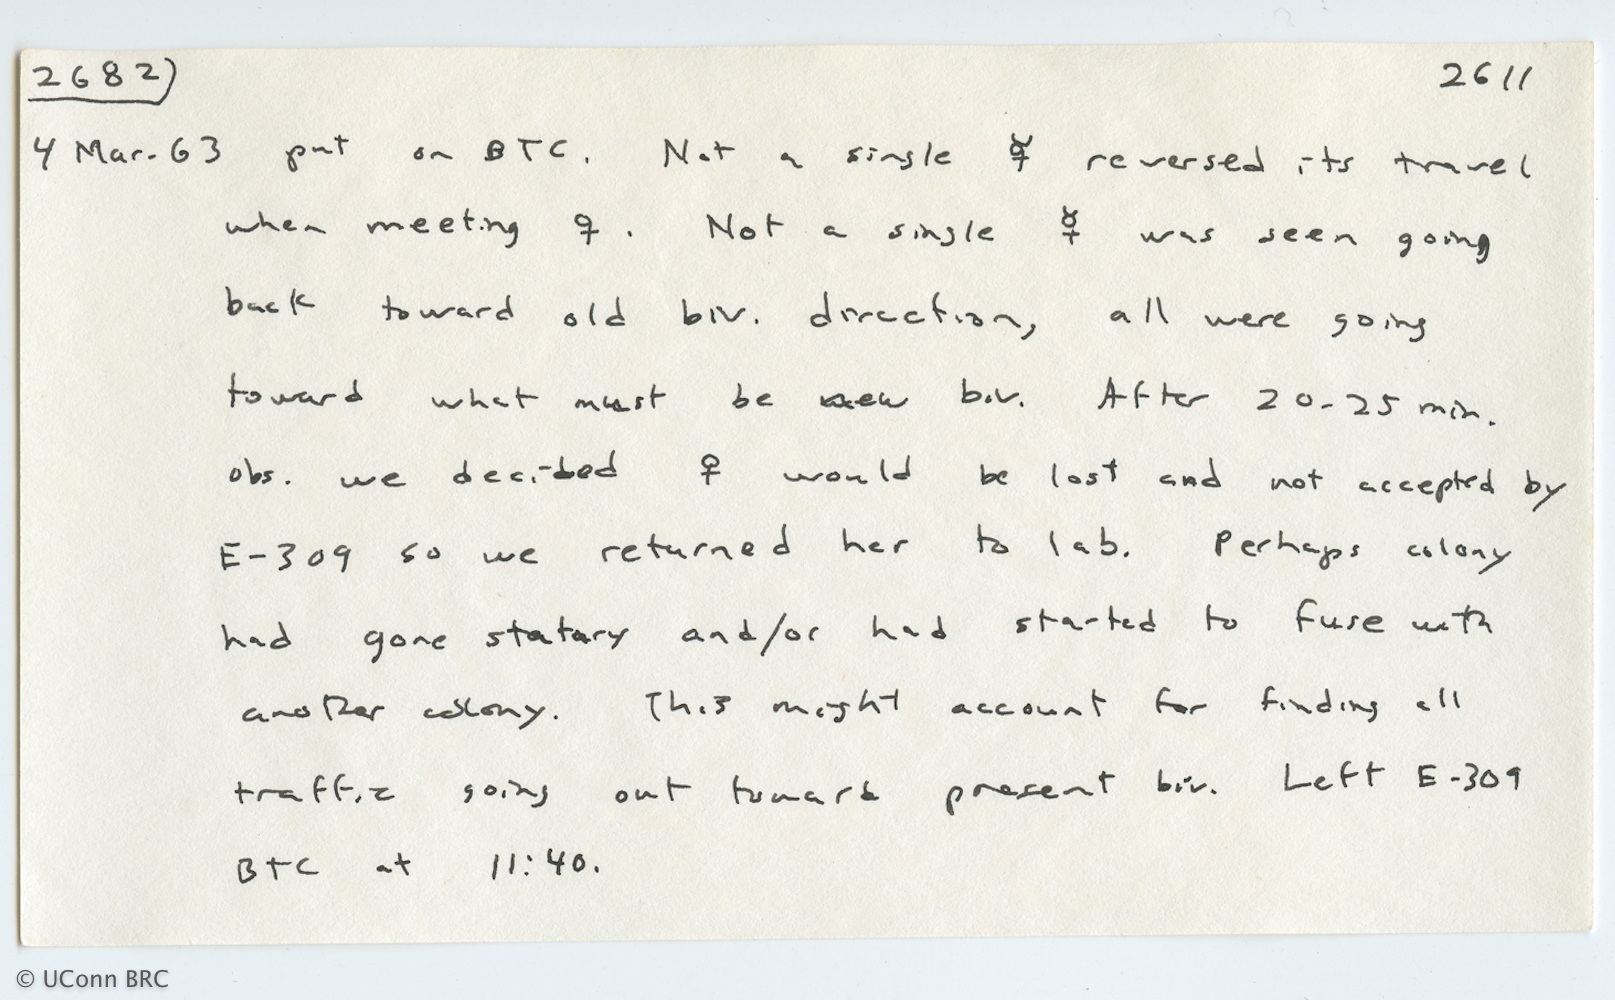 2682) 2611
4 Mar. 63 put on BTC. Not a single ☿ reversed its travel
when meeting ♀. Not a single ☿ was seen going
back toward old biv. direction, all were going
toward what must be new biv. After 20-25 min.
obs. we decided ♀ would be lost and not accepted by
E-309 so we returned her to lab. Perhaps colony
had gone statary and/or had started to fuse with
another colony. This might account for finding all
traffic going out toward present biv. Left E-309
BTC at 11:40.
© UConn BRC